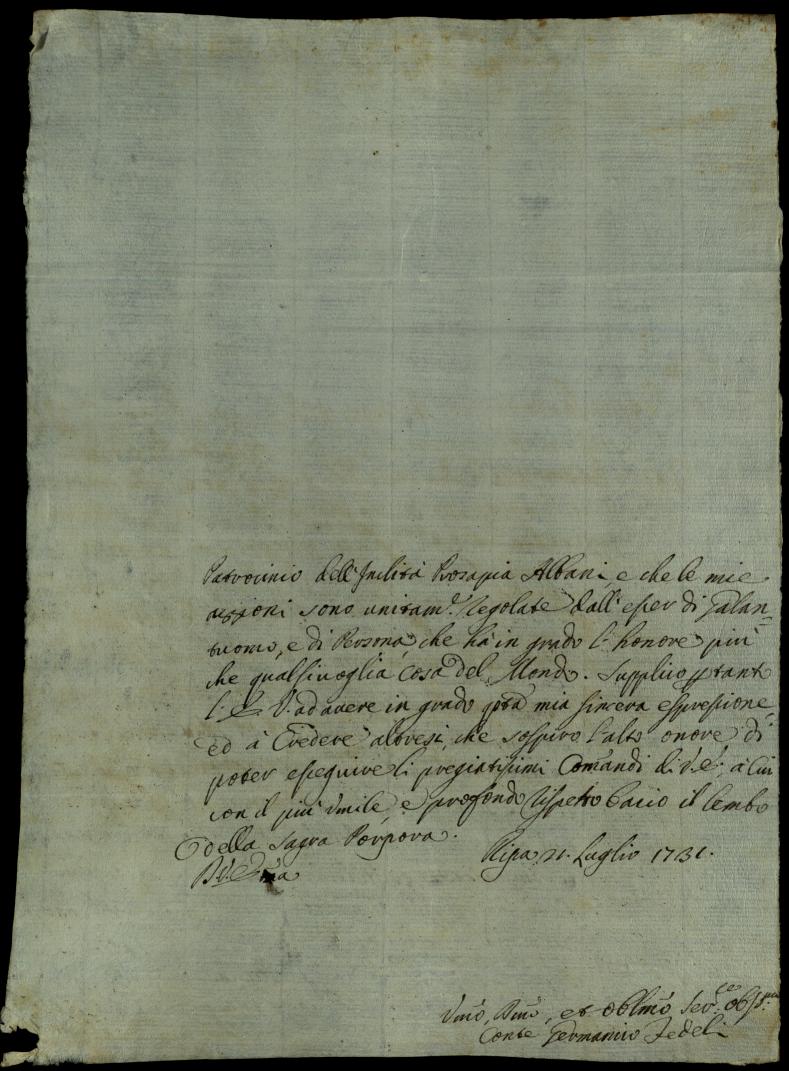 Patrocinio dell'Inclita Prosapia Albani, e che le mie
azzioni sono unitam.e regolate dall'esser di Galan=
tuomo, e di Persona, che hà in grado l'honore più
che qualsivoglia Cosa del Mondo. Supplico ptant
l'E. V. ad avere in grado qta mia sincera espressione
ed à Credere altresi, che sospiro l'alto onore di
poter eseguire li pregiatissimi Comandi di V. E., à Cui
con il più umile, e profondo rispetto bacio il lembo
della Sagra Porpora.
Ripa 21. Luglio 1731.
D. V. Emza
Umo, Dmo, et Obblmo Ser.re
Conte Germanico Fedeli